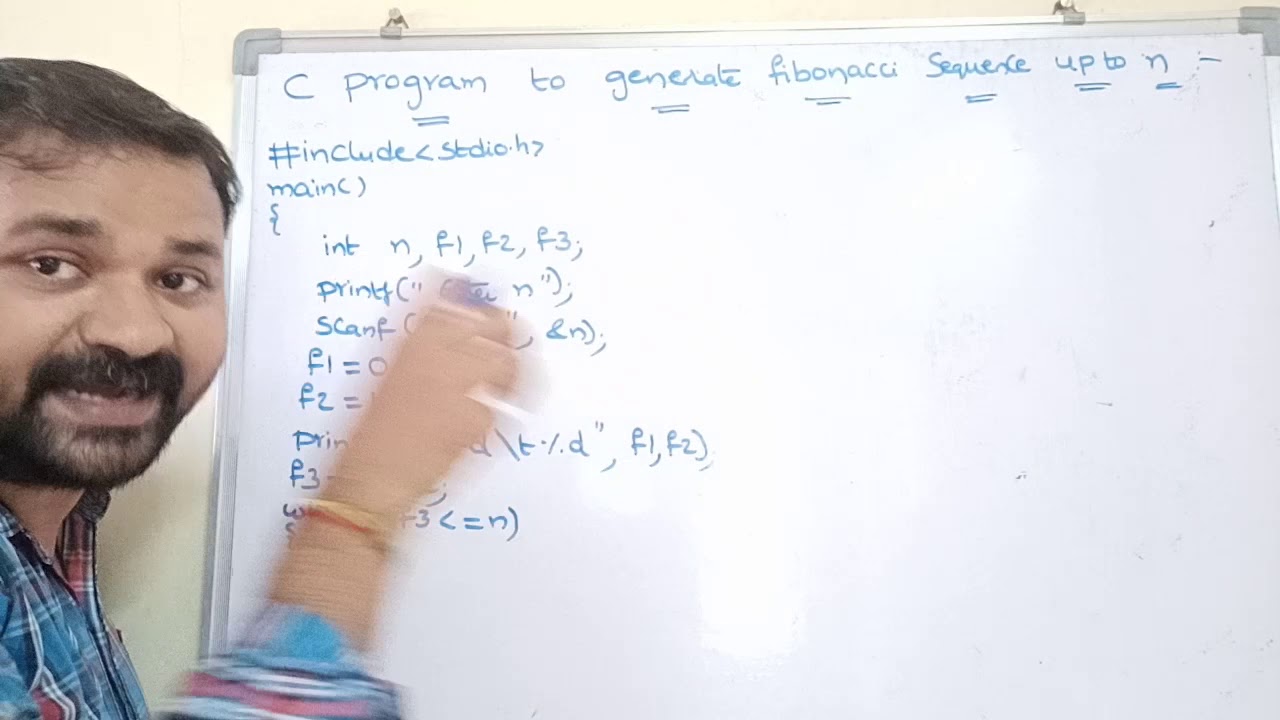 C program to generate fibonacci sequence upto n :-
#include<stdio.h>
main()
{
int n, f1, f2, f3;
printf(" n");
scanf( ", &n);
f1=0
f2=
prin d\t%d", f1,f2);
f3 ;
f3<=n)